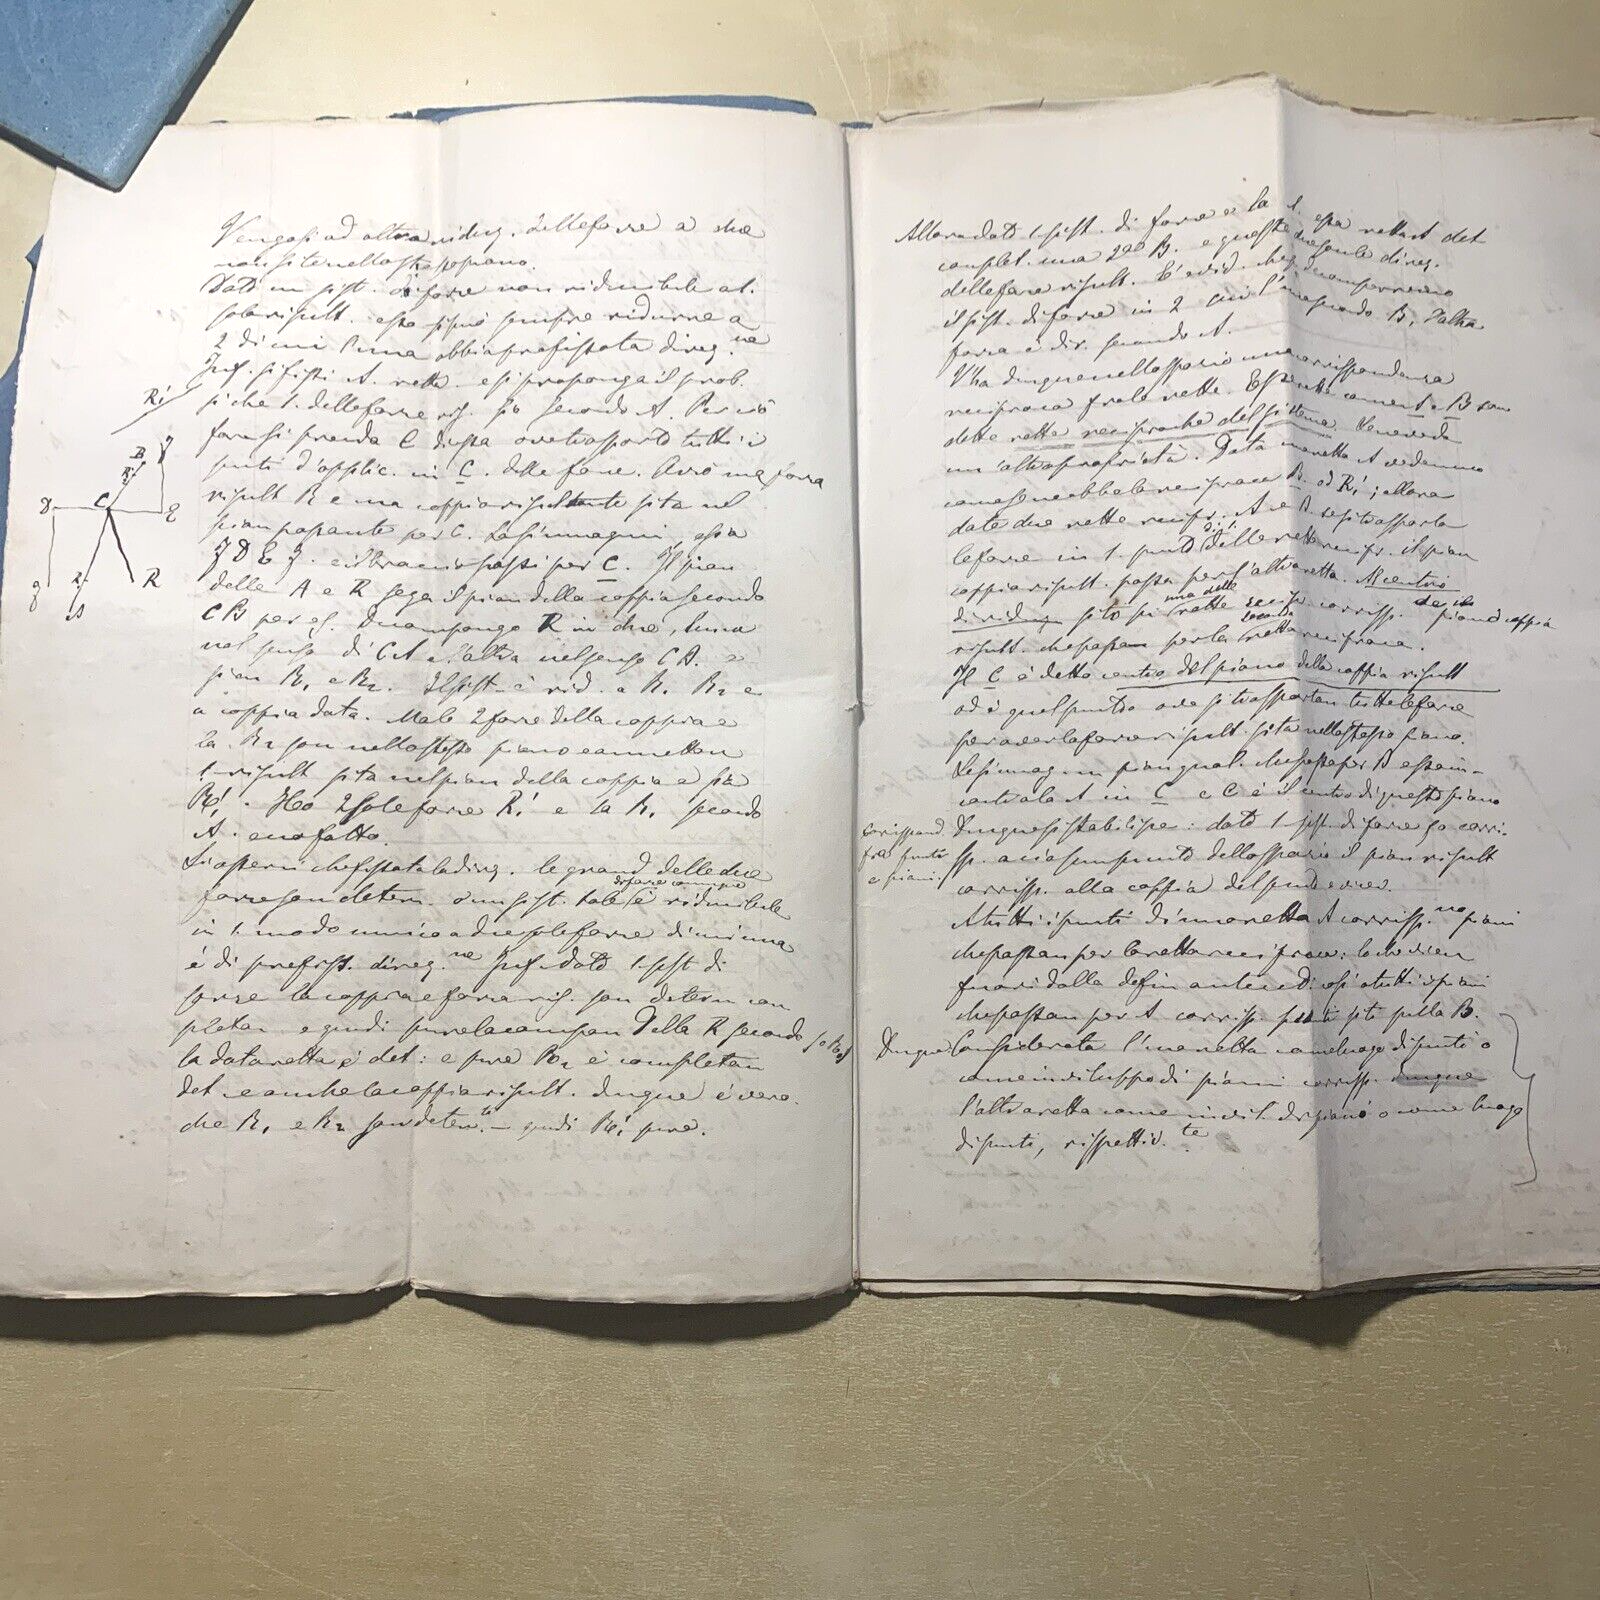 Vengasi ad altra riduz. delle forze a due
non site nello stesso piano.
Dato un sist. di forze non riducibile a 1.
sola risult. esso si può sempre ridurre a
2 di cui l'una abbia prefissata direz.ne
Inf. si fissi A. retta e si proponga il prob.
si che 1. delle forze ris. sia secondo A. Per ciò
fare si prenda C su essa ove trasporto tutti i
punti d'applic. in C. delle forze. Avrò una forza
risult R e una coppia risultante sita nel
pian passante per C. La s'immagini, essa
e il braccio passi per C. Il pian
delle A e R sega il pian della coppia secondo
CB per es. Decompongo R in due, l'una
nel senso di CA e l'altra nel senso CB.
sian R1 e R2. Il sist. è rid. a R1 R2 e
a coppia data. Ma le 2 forze della coppia e
la R2 son nello stesso piano e ammetton
1. risult sita nel pian della coppia e sia
R'1. Ho 2 sole forze R'1 e la R1 secondo
A. e ciò fatto.
Si osservi che fissata la direz. le grand. delle due
forze son determ. Un sist. tale di forze è riducibile
in 1. modo unico a due sole forze di cui una
è di prefiss. direz.ne Inf. dato 1. sist di
forze la coppia e forza ris. son determ com
pletam e quindi pure la compon della R secondo
la data retta è det: e pure R2 è completam
det. e anche la coppia risult. dunque è vero
che R1 e R2 son determ.te quindi R'1 pure.
R'1
B
R2
C
E
R1
R
A
Allora dato 1. sist. di forze e la 1. essa retta A det
complet. una 2da B. e queste due son le direz.
delle forze risult. È evid. che decomporremo
il sist. di forze in 2 cui l'una secondo B, l'altra
forza è dir. secondo A.
V'ha dunque nello spazio una corrispondenza
reciproca fra le rette. Esse rette come A e B son
dette rette reciproche del sistema. Se ne veda
un'altra proprietà. Data una retta A vedemmo
come se ne ebbe la reciproca B. od R'1; allora
date due rette recipr. A e B se si trasporta
le forze in 1. punto di 1. delle rette recipr. il pian
coppia risult. passa per l'altra retta.
sito su una delle rette recipr. corrisp.
risult. che passan per la seconda retta reciproca.
Il C è detto centro del piano della coppia risult
od è quel punto ove si trasportan tutte le forze
per aver la forza risult. sita nello stesso piano.
Se s'immag. un pian qual. che passa per B esso in-
contra la A in C e C è il centro di questo piano
Corrispond. fra punti e piani.
Dunque si stabilisce: dato 1. sist. di forze fo corri-
sp. a ciascun punto dello spazio il pian risult
corrisp. alla coppia del punto e vicev.
A tutti i punti di una retta A corrisp.no piani
che passan per la retta reciproca: lo che vien
fuori dalla defin anteced. così a tutti i piani
che passan per A corrisp. punti siti sulla B.
Dunque Considerata l'una retta come luogo di punti o
come inviluppo di piani corrisp. dunque
l'altra retta come invil. di piani o come luogo
di punti, rispettiv.te